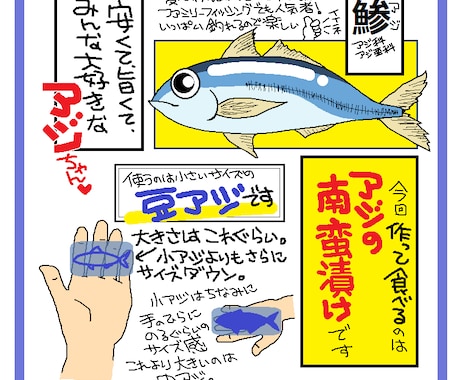 ファミリーフィッシングでも人気者!
いっぱい釣れるので楽しい
イイネ
アジ
鯵
アジ科
アジ亜科
安くて、旨くて、
みんな大好きな
アジちゃん♥
使うのは小さいサイズの
豆アジです
大きさはこれぐらい。
小アジよりもさらに
サイズダウン。
小アジはちなみに
手のひらに
のるぐらいの
サイズ感
これより大きいのは
今回作って食べるのは
アジの
南蛮漬け
です